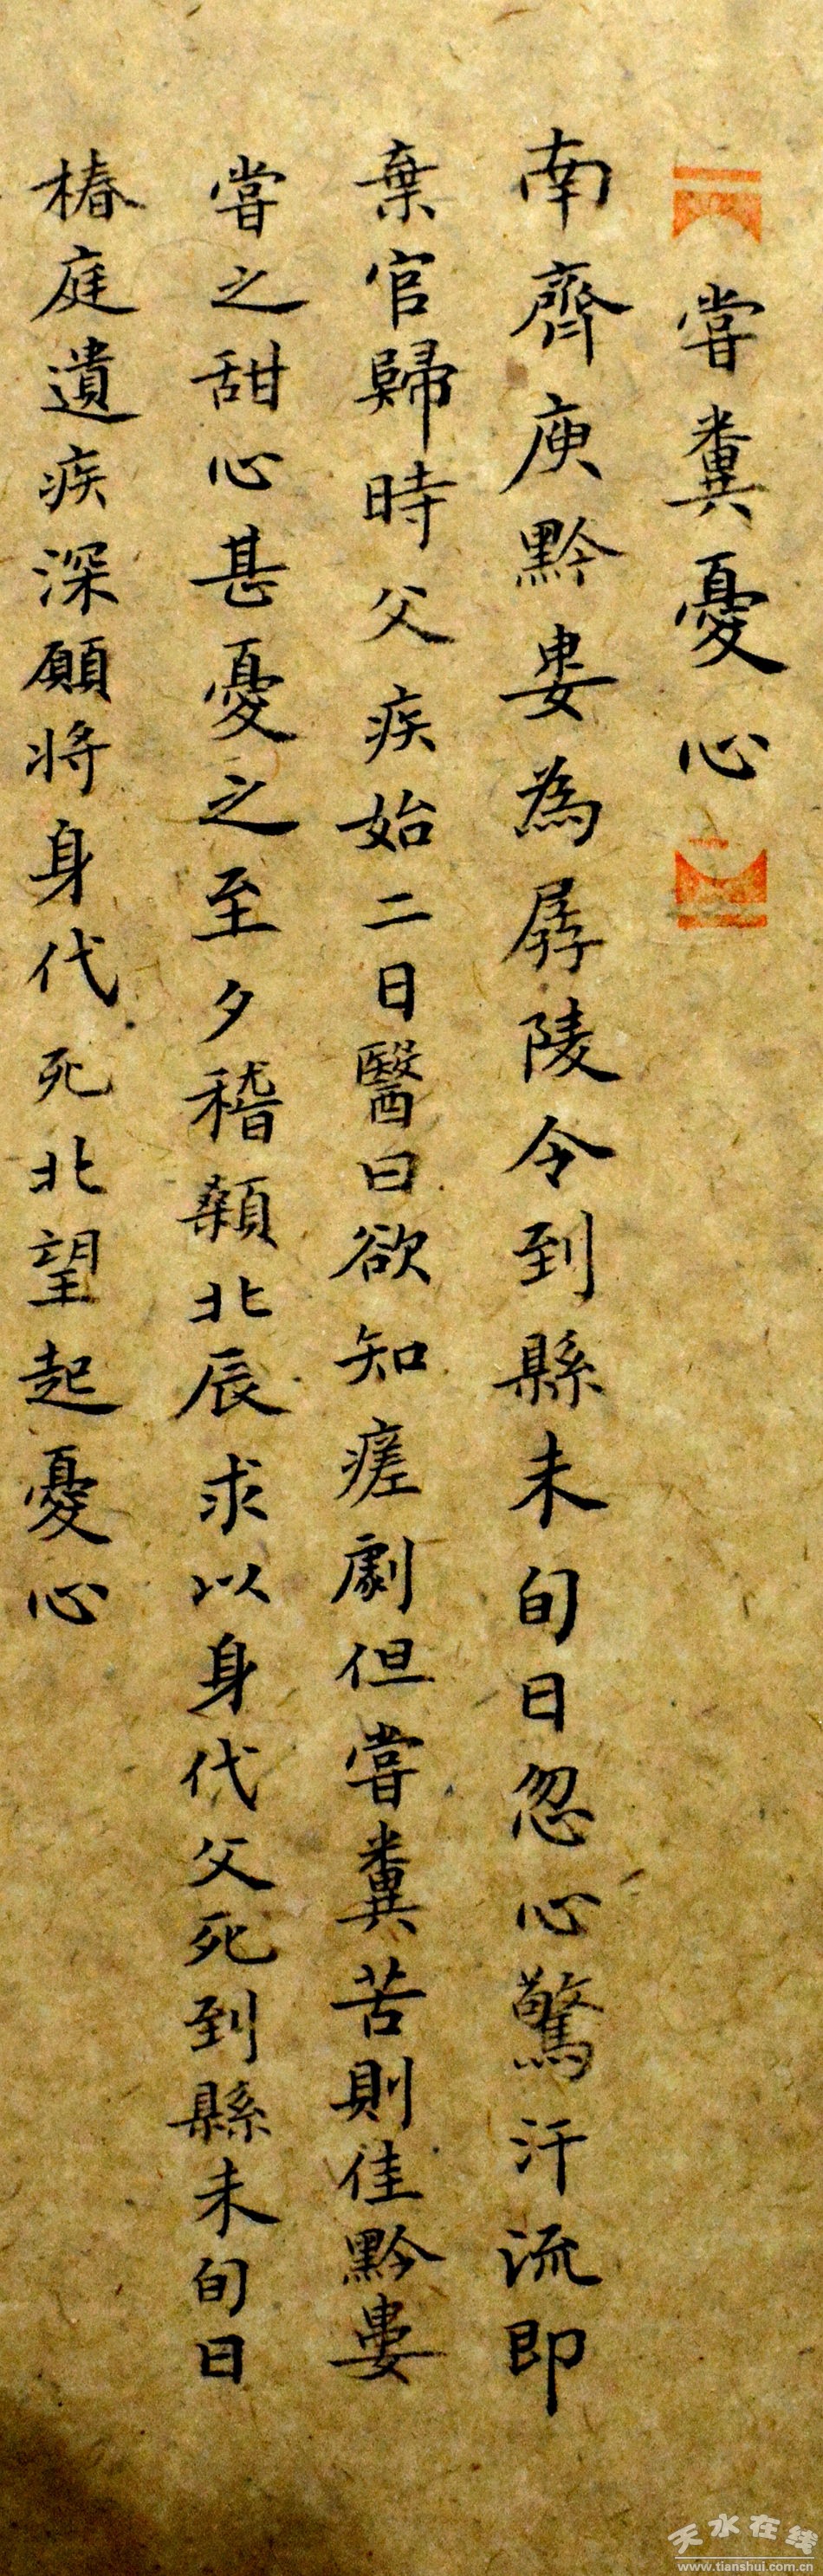 嘗糞憂心
南齊庾黔婁為孱陵令到縣未旬日忽心驚汗流即
棄官歸時父疾始二日醫曰欲知瘥劇但嘗糞苦則佳黔婁
嘗之甜心甚憂之至夕稽顙北辰求以身代父死到縣未旬日
椿庭遺疾深願將身代死北望起憂心
天水在线
www.tianshui.com.cn